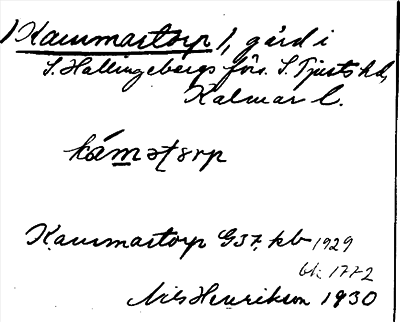 /Kammarstorp/, gård i
S. Hallingebergs förs. S. Tjusts hd,
Kalmar l.
Kammarstorp G37, kb 1929
bk 1772
Nils Henrikson 1930